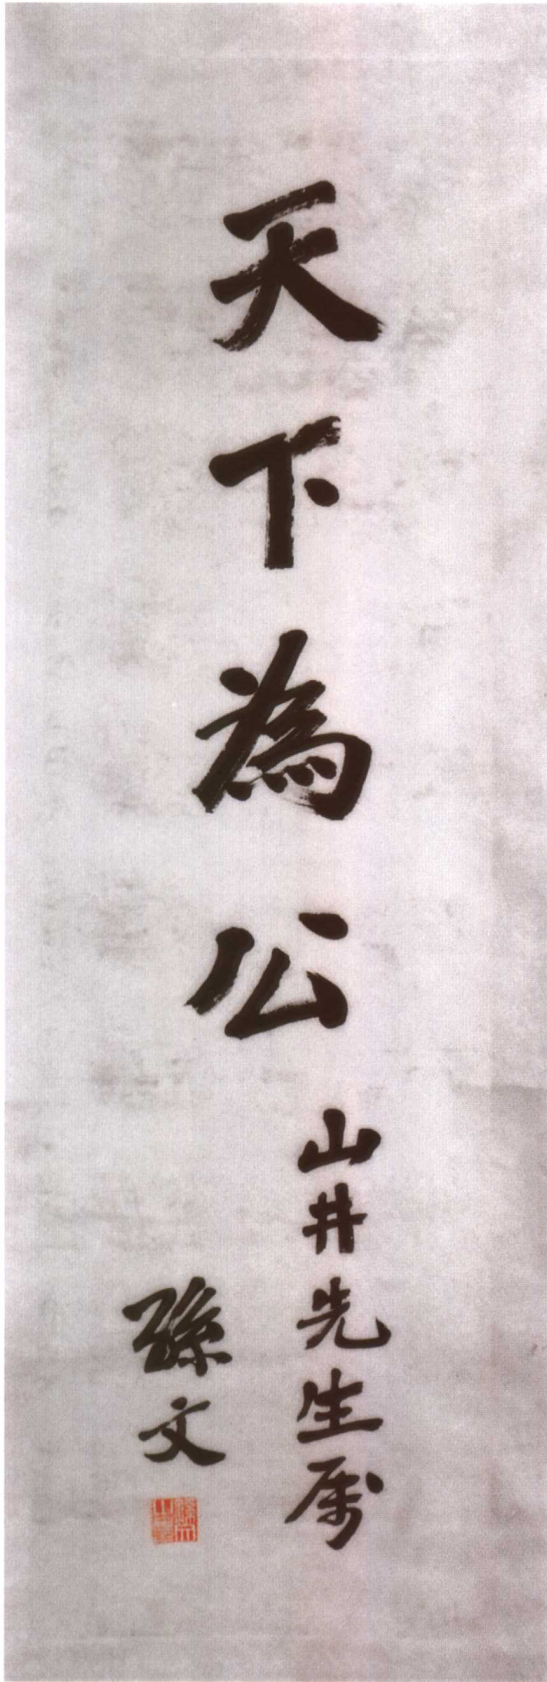 天下為公
山井先生属
孫文